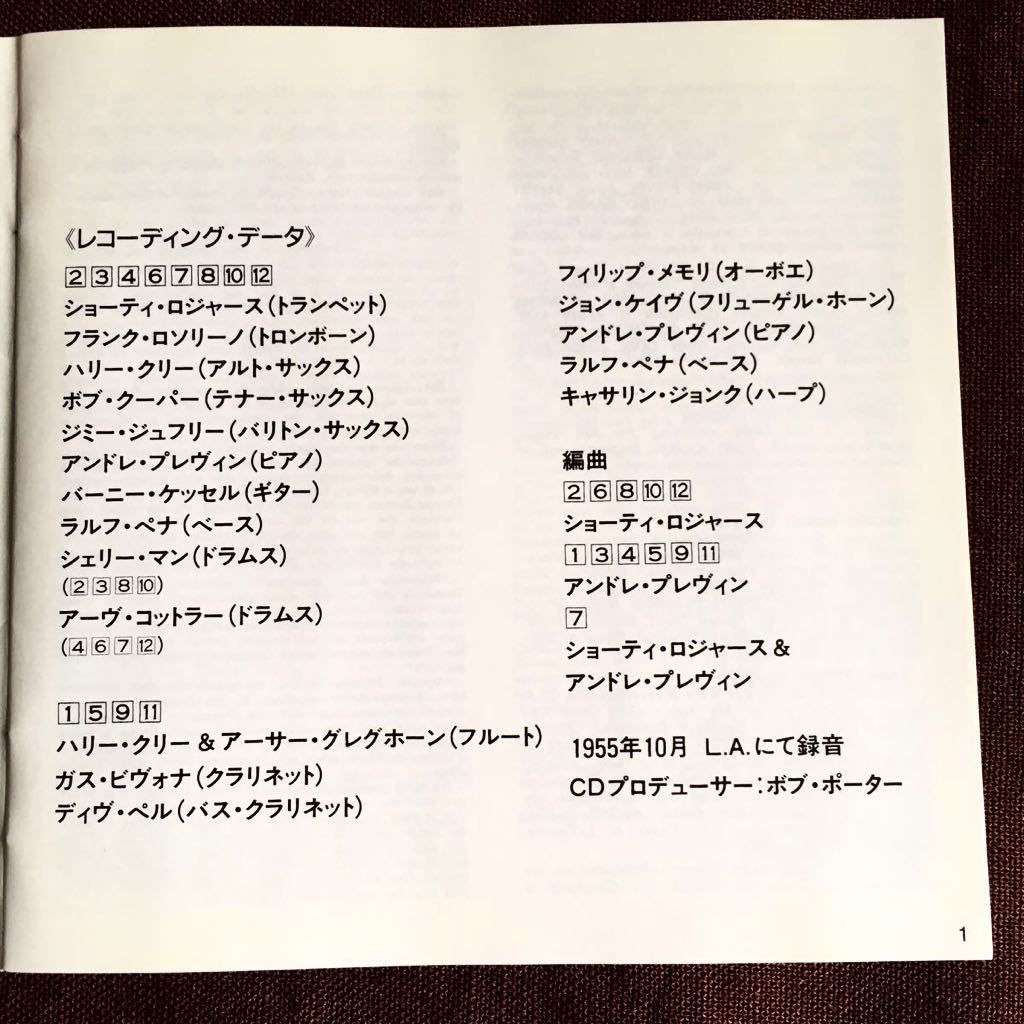 《レコーディング・データ》
2 3 4 6 7 8 10 12
ショーティ・ロジャース(トランペット)
フランク・ロソリーノ(トロンボーン)
ハリー・クリー(アルト・サックス)
ボブ・クーパー(テナー・サックス)
ジミー・ジュフリー(バリトン・サックス)
アンドレ・プレヴィン(ピアノ)
バーニー・ケッセル(ギター)
ラルフ・ペナ(ベース)
シェリー・マン(ドラムス)
(2 3 8 10)
アーヴ・コットラー(ドラムス)
(4 6 7 12)
1 5 9 11
ハリー・クリー&アーサー・グレグホーン(フルート)
ガス・ビヴォナ(クラリネット)
ディヴ・ペル(バス・クラリネット)
フィリップ・メモリ(オーボエ)
ジョン・ケイヴ(フリューゲル・ホーン)
アンドレ・プレヴィン(ピアノ)
ラルフ・ペナ(ベース)
キャサリン・ジョンク(ハープ)
編曲
2 6 8 10 12
ショーティ・ロジャース
1 3 4 5 9 11
アンドレ・プレヴィン
7
ショーティ・ロジャース&
アンドレ・プレヴィン
1955年10月 L.A.にて録音
CDプロデューサー:ボブ・ポーター
1